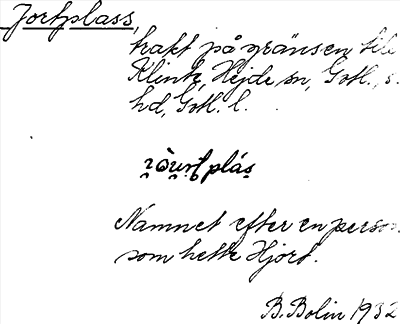 Jortplass,
trakt på gränsen till
Klinte, Hejde sn, Gotl., s.
hd, Gotl. l.
Namnet efter en person
som hette Hjort.
B. Bolin 1932